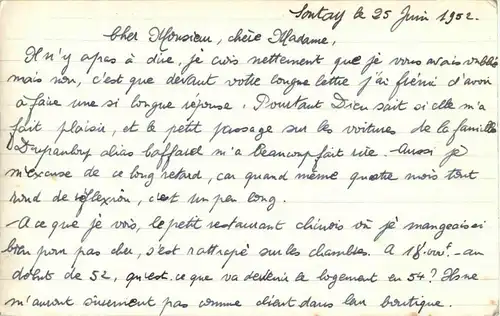 Sontay le 25 Juin 1952.
Cher Monsieur, chère Madame,
Il n'y a pas à dire, je crois nettement que je vous avais oubliés
mais non, c'est que devant votre longue lettre j'ai frémi d'avoir
à faire une si longue réponse. Pourtant Dieu sait si elle m'a
fait plaisir, et le petit passage sur les voitures de la famille
alias m'a beaucoup fait rire. Aussi je
m'excuse de ce long retard, car quand même quatre mois tout
rond de réflexion, c'est un peu long.
A ce que je vois, le petit restaurant chinois où je mangeais si
bien pour pas cher, s'est rattrapé sur les chambres. A 18. au
début de 52, qu'est-ce que va devenir le logement en 54? Ils ne
m'auront sûrement pas comme client dans leur boutique.